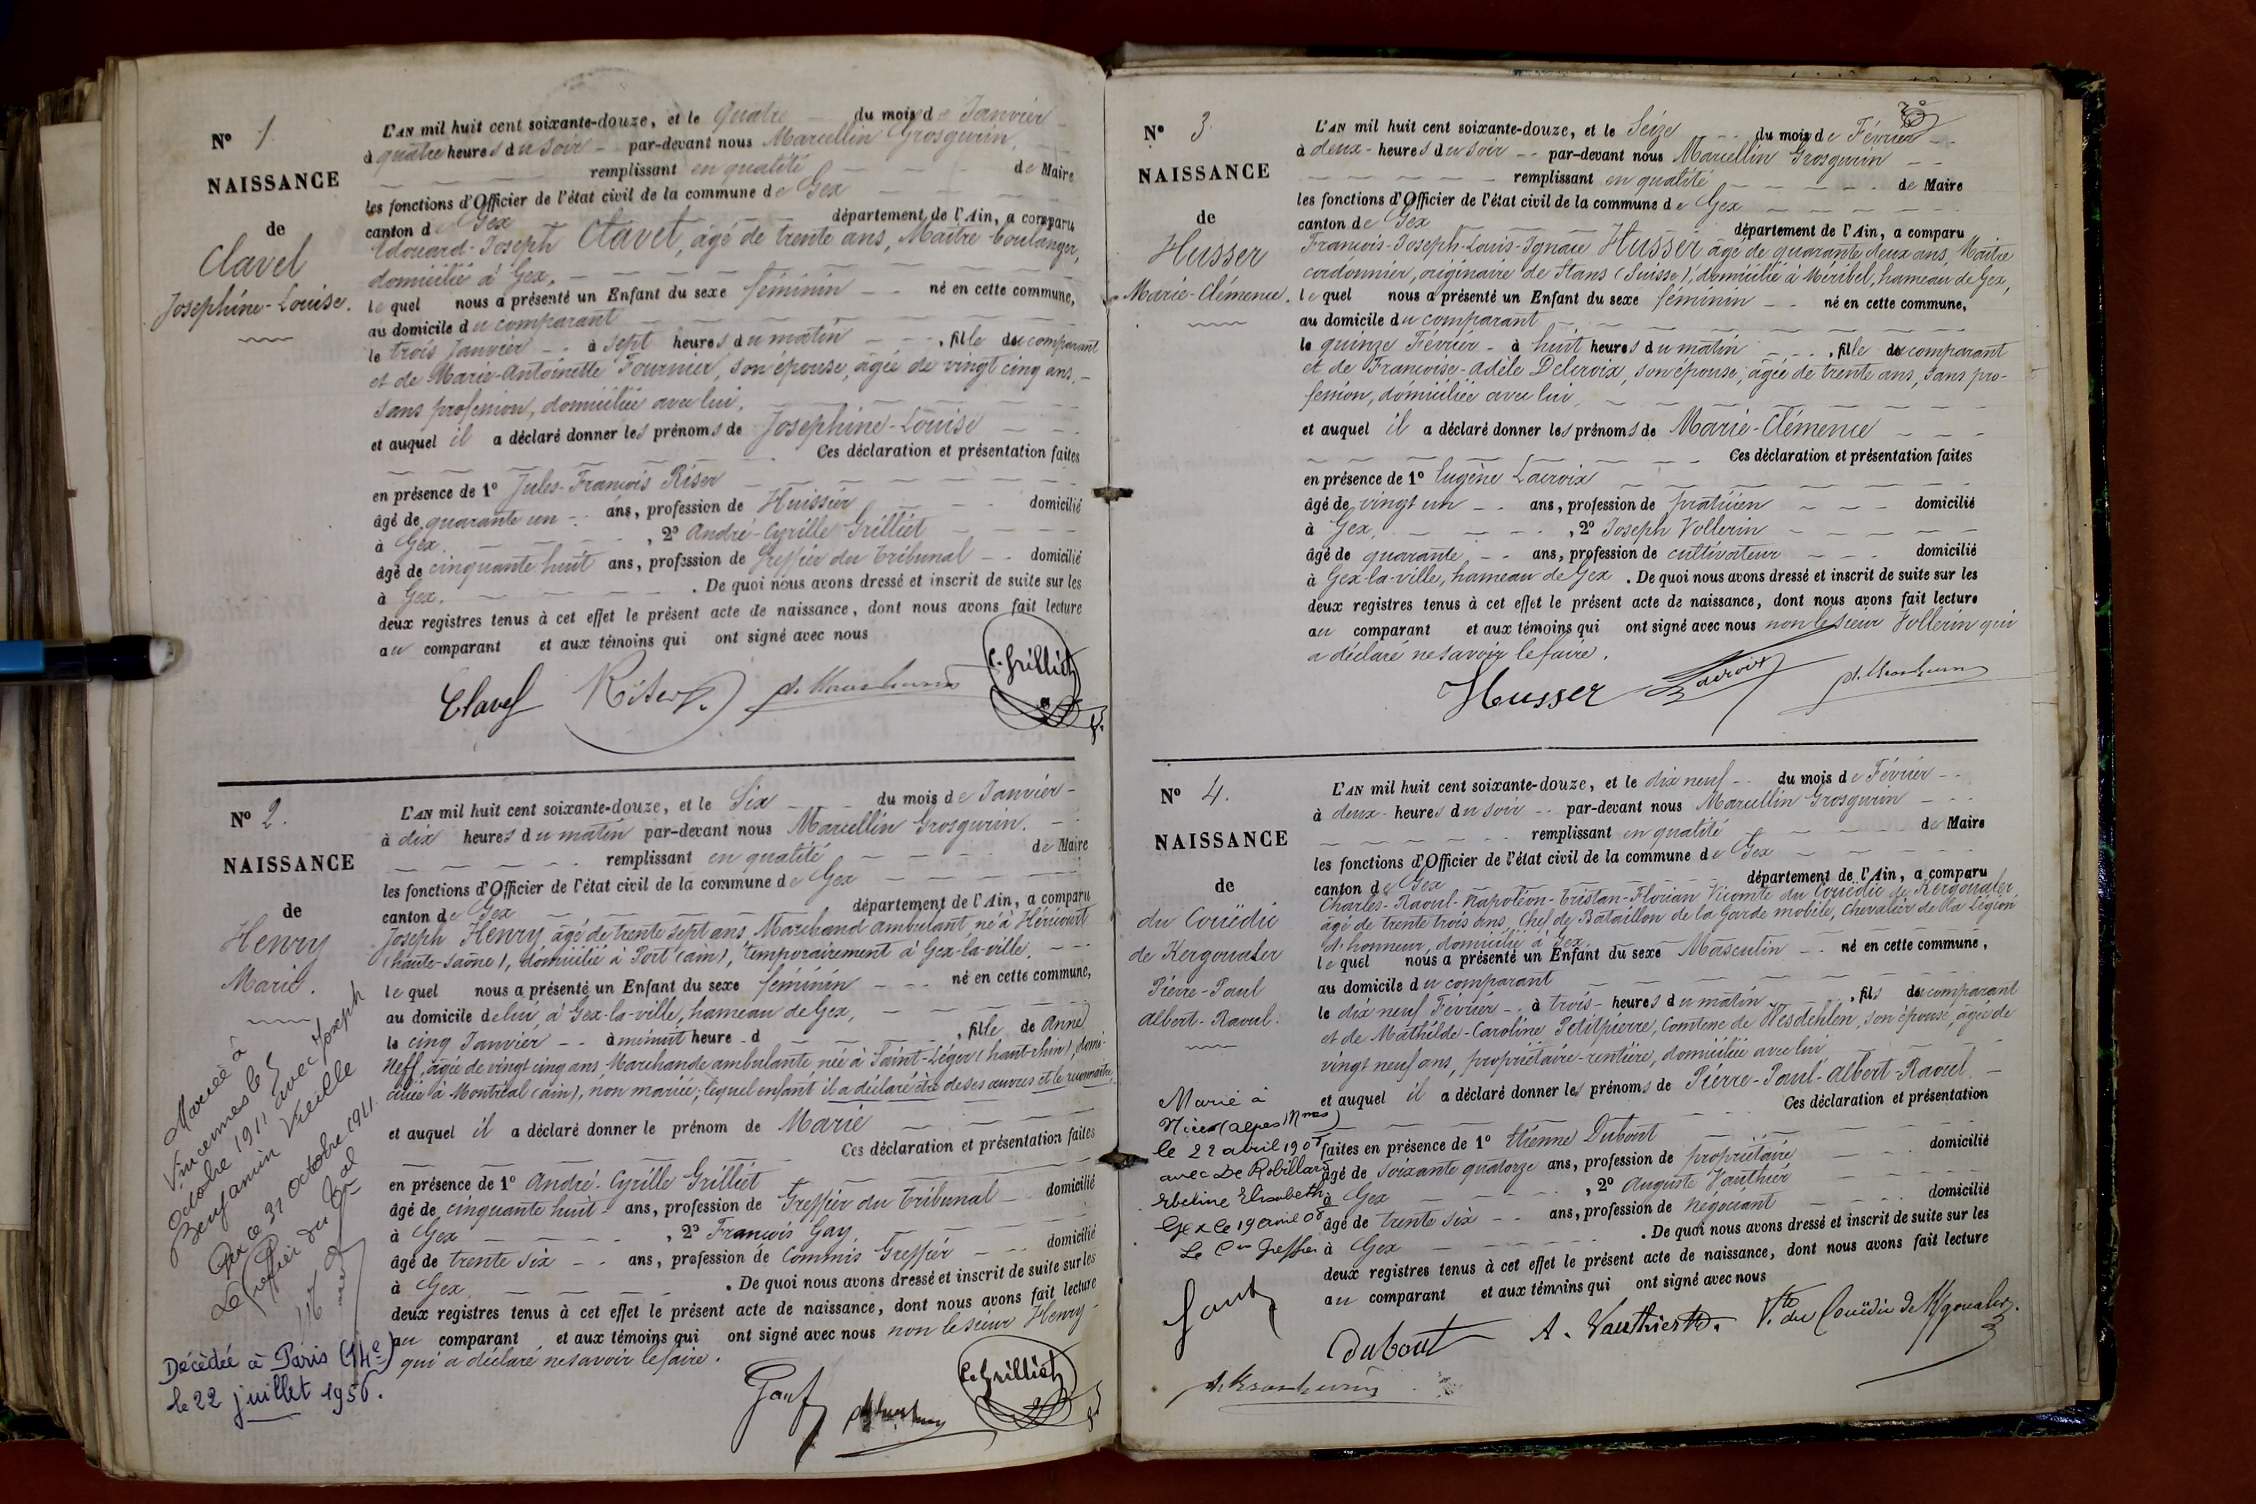 N° 1
NAISSANCE
de
Clavel
Josephine-Louise.
L'AN mil huit cent soixante-douze, et le Quatre du mois de Janvier
à quatre heures du soir par-devant nous Marcellin Grosgurin,
remplissant en qualité de Maire
les fonctions d'Officier de l'état civil de la commune de Gex
canton de Gex département de l'Ain, a comparu
Edouard-Joseph Clavel, âgé de trente ans, Maître boulanger,
domicilié à Gex,
lequel nous a présenté un Enfant du sexe féminin né en cette commune,
au domicile du comparant
le trois Janvier à sept heures du matin, fille du comparant
et de Marie-Antoinette Fournier, son épouse, âgée de vingt cinq ans,
sans profession, domiciliée avec lui.
et auquel il a déclaré donner les prénoms de Josephine-Louise
Ces déclaration et présentation faites
en présence de 1° Jules-François Riser
âgé de quarante un ans, profession de Huissier domicilié
à Gex, 2° André-Cyrille Grilliet
âgé de cinquante huit ans, profession de Greffier du Tribunal domicilié
à Gex. De quoi nous avons dressé et inscrit de suite sur les
deux registres tenus à cet effet le présent acte de naissance, dont nous avons fait lecture
au comparant et aux témoins qui ont signé avec nous
Clavel Riser C. Grilliet
N° 2.
NAISSANCE
de
Henry
Marie.
L'AN mil huit cent soixante-douze, et le Six du mois de Janvier
à dix heures du matin par-devant nous Marcellin Grosgurin.
remplissant en qualité de Maire
les fonctions d'Officier de l'état civil de la commune de Gex
canton de Gex département de l'Ain, a comparu
Joseph Henry âgé de trente sept ans Marchand ambulant né à Héricourt
(haute-Saône), domicilié à Port (ain), temporairement à Gex-la-ville.
lequel nous a présenté un Enfant du sexe féminin né en cette commune,
au domicile de lui, à Gex-la-ville, hameau de Gex,
le cinq Janvier à minuit heure d, fille de Anne
Neff, âgée de vingt cinq ans, Marchande ambulante née à Saint-Léger (haut-rhin), domi-
ciliée à Montréal (ain), non mariée; lequel enfant il a déclaré être de ses œuvres et le reconnaître,
et auquel il a déclaré donner le prénom de Marie
Ces déclaration et présentation faites
en présence de 1° André-Cyrille Grilliet
âgé de cinquante huit ans, profession de Greffier du Tribunal domicilié
à Gex, 2° François Gay
âgé de trente six ans, profession de Commis Greffier domicilié
à Gex. De quoi nous avons dressé et inscrit de suite sur les
deux registres tenus à cet effet le présent acte de naissance, dont nous avons fait lecture
au comparant et aux témoins qui ont signé avec nous non le sieur Henry
qui a déclaré ne savoir le faire.
C. Grilliet
Mariée à
Vincennes le 5
octobre 1911 avec Joseph
Benjamin Vieille
Gex ce 31 octobre 1911
Le Greffier du Tal
Décédée à Paris (14e)
le 22 juillet 1956.
N° 3
NAISSANCE
de
Husser
Marie-Clémence.
L'AN mil huit cent soixante-douze, et le Seize du mois de Février
à deux heures du soir par-devant nous Marcellin Grosgurin
remplissant en qualité de Maire
les fonctions d'Officier de l'état civil de la commune de Gex
canton de Gex département de l'Ain, a comparu
François-Joseph-Louis-Ignace Husser âgé de quarante deux ans, Maître
cordonnier, originaire de Stans (Suisse), domicilié à Méribel, hameau de Gex,
lequel nous a présenté un Enfant du sexe féminin né en cette commune,
au domicile du comparant
le quinze Février à huit heures du matin, fille du comparant
et de Françoise-Adèle Delervoix, son épouse, âgée de trente ans, sans pro-
fession, domiciliée avec lui
et auquel il a déclaré donner les prénoms de Marie-Clémence
Ces déclaration et présentation faites
en présence de 1° Eugène Lacroix
âgé de vingt un ans, profession de praticien domicilié
à Gex, 2° Joseph Vollerin
âgé de quarante ans, profession de cultivateur domicilié
à Gex-la-ville, hameau de Gex. De quoi nous avons dressé et inscrit de suite sur les
deux registres tenus à cet effet le présent acte de naissance, dont nous avons fait lecture
au comparant et aux témoins qui ont signé avec nous non le sieur Vollerin qui
a déclaré ne savoir le faire.
Husser Lacroix
N° 4.
NAISSANCE
de
du Couëdic
de Kergoualer
Pierre-Paul
Albert-Raoul.
L'AN mil huit cent soixante-douze, et le dix neuf du mois de Février
à deux heures du soir par-devant nous Marcellin Grosgurin
remplissant en qualité de Maire
les fonctions d'Officier de l'état civil de la commune de Gex
canton de Gex département de l'Ain, a comparu
Charles-Raoul-Napoléon-Tristan-Florian Vicomte du Couëdic de Kergoualer
âgé de trente trois ans, Chef de Bataillon de la Garde mobile, Chevalier de la Légion
d'honneur, domicilié à Gex.
lequel nous a présenté un Enfant du sexe Masculin né en cette commune,
au domicile du comparant
le dix neuf Février à trois heures du matin, fils du comparant
et de Mathilde-Caroline Petitpierre, Comtesse de Wesdehlen, son épouse, âgée de
vingt neuf ans, propriétaire-rentière, domiciliée avec lui
et auquel il a déclaré donner les prénoms de Pierre-Paul-Albert-Raoul
Ces déclaration et présentation
faites en présence de 1° Etienne Dubout domicilié
âgé de soixante quatorze ans, profession de propriétaire
à Gex, 2° Auguste Vauthier
âgé de trente six ans, profession de négociant domicilié
à Gex. De quoi nous avons dressé et inscrit de suite sur les
deux registres tenus à cet effet le présent acte de naissance, dont nous avons fait lecture
au comparant et aux témoins qui ont signé avec nous
Dubout A. Vauthier Vte du Couëdic de Kgoualer
Marié à
Nice (Alpes Mmes)
le 22 avril 1908
avec De Robillard
Elisabeth
Gex le 19 avril 08
Le Cis Greffier